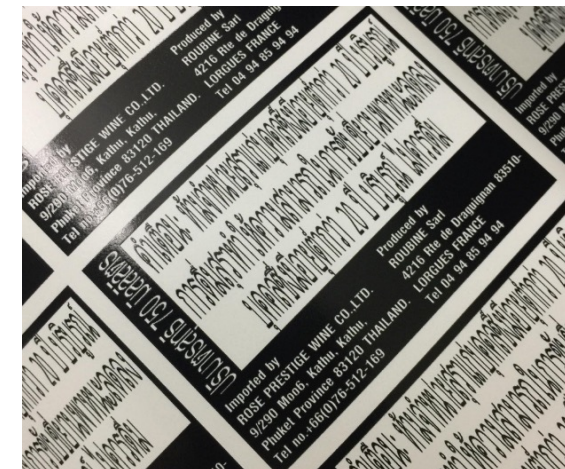 คำเตือน: ห้ามจำหน่ายสุราแก่บุคคลซึ่งมีอายุต่ำกว่า 20 ปี บริบูรณ์
การดื่มสุราทำให้ความสามารถในการขับขี่ยานพาหนะลดลง
บุคคลซึ่งมีอายุต่ำกว่า 20 ปี บริบูรณ์ ไม่ควรดื่ม
ปริมาตรสุทธิ 750 มิลลิลิตร
Imported by
ROSE PRESTIGE WINE CO.,LTD.
9/290 Moo6, Kathu, Kathu,
Phuket Province 83120 THAILAND.
Tel no.+66(0)76-512-169
Produced by
ROUBINE Sarl
4216 Rte de Draguignan 83510-
LORGUES FRANCE
Tel 04 94 85 94 94